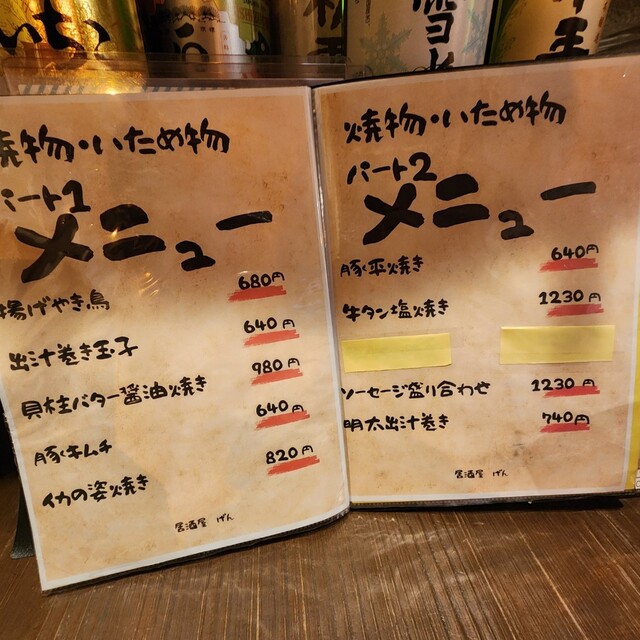 いちか
雪
焼物・いため物
パート1
メニュー
揚げやき鳥 680円
出汁巻き玉子 640円
貝柱バター醤油焼き 980円
豚キムチ 640円
イカの姿焼き 820円
居酒屋 げん
焼物・いため物
パート2
メニュー
豚平焼き 640円
牛タン塩焼き 1230円
ソーセージ盛り合わせ 1230円
明太出汁巻き 740円
居酒屋 げん